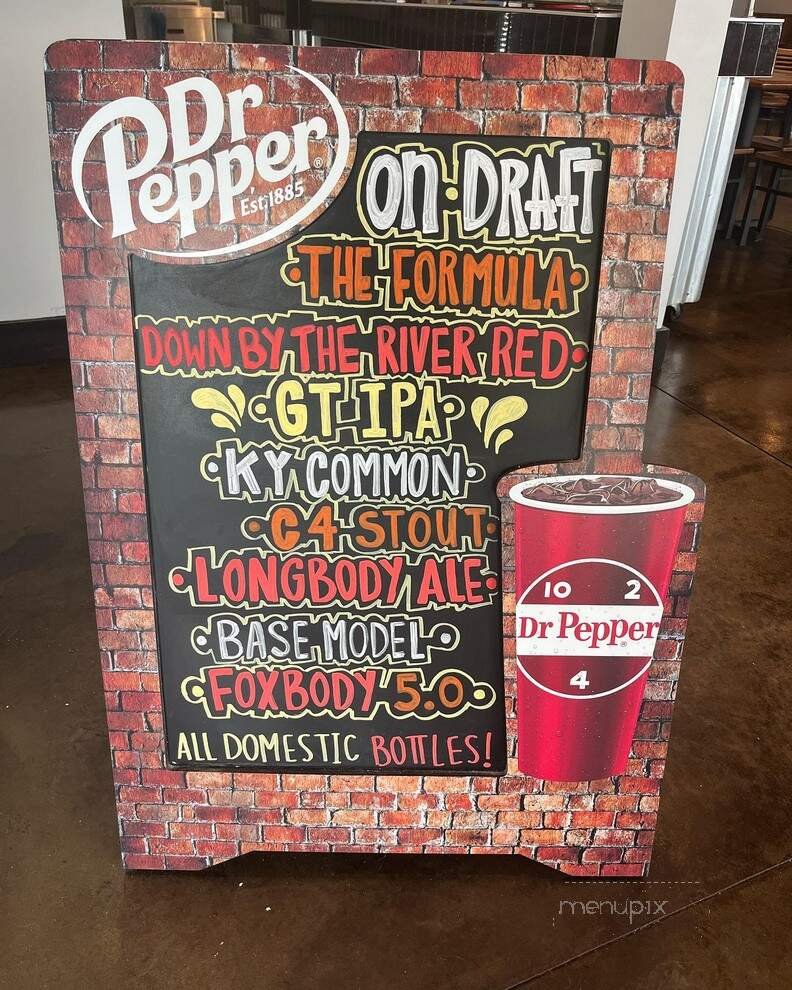 Dr
Pepper®
Est.1885
On·DRAFT
·THE FORMULA·
DOWN BY THE RIVER RED·
·GT IPA·
·KY COMMON·
·C4 STOUT·
·LONGBODY ALE·
·BASE MODEL·
·FOXBODY 5.0·
ALL DOMESTIC BOTTLES!
10 2
Dr Pepper®
4
menupix